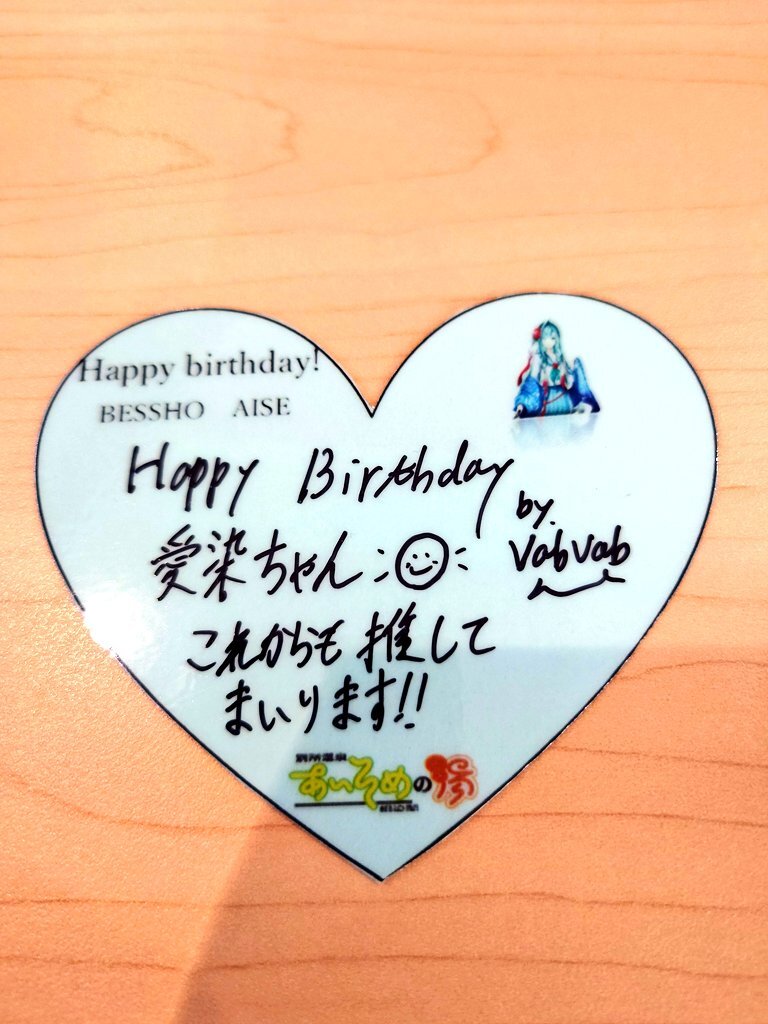 Happy birthday!
BESSHO AISE
Happy Birthday
by.
VabVab
愛染ちゃん
これからも推して
まいります!!
別所温泉
あいそめの湯